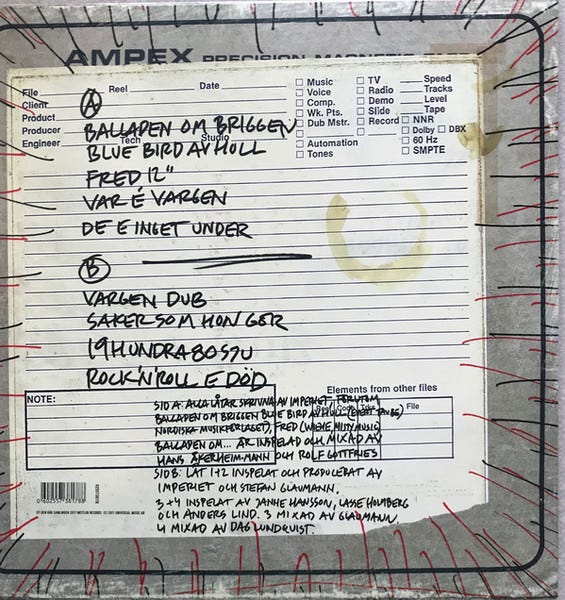 AMPEX PRECISION MAGNETIC
File Reel Date
Client
Product
Producer
Engineer Tech Studio
Music
Voice
Comp.
Wk. Pts.
Dub Mstr.
Automation
Tones
TV
Radio
Demo
Slide
Record
Speed
Tracks
Level
Tape
NNR
Dolby DBX
60 Hz
SMPTE
A
BALLADEN OM BRIGGEN
BLUE BIRD AV HULL
FRED 12"
VAR É VARGEN
DE E INGET UNDER
B
VARGEN DUB
SAKER SOM HON GER
19HUNDRA80SJU
ROCK'N'ROLL E DÖD
NOTE:
Elements from other files
File
SID A: ALLA LÅTAR SKRIVNA AV IMPERIET, FÖRUTOM
BALLADEN OM BRIGGEN BLUE BIRD AV HULL (EVERT TAUBE)
NORDISKA MUSIKFÖRLAGET), FRED (WYCHE, MISTY MUSIC)
BALLADEN OM... ÄR INSPELAD OCH MIXAD AV
HANS ÅKERHEIM-MANN OCH ROLF GOTTFRIES
SID B: LÅT 1+2 INSPELAT OCH PRODUCERAT AV
IMPERIET OCH STEFAN GLAUMANN.
3+4 INSPELAT AV JANNE HANSSON, LASSE HOLMBERG
OCH ANDERS LIND. 3 MIXAD AV GLAUMANN.
4 MIXAD AV DAG LUNDQUIST.